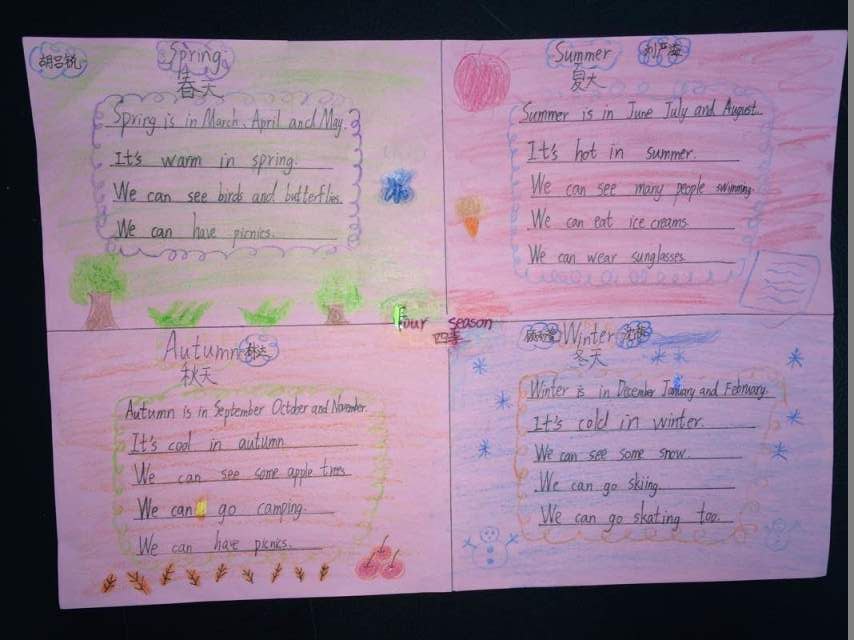 Spring
春天
Spring is in March、April and May.
It's warm in spring.
We can see birds and butterflies.
We can have picnics.
Summer
夏天
Summer is in June July and August.
It's hot in summer.
We can see many people swimming.
We can eat ice creams.
We can wear sunglasses.
Four season
四季
Autumn
秋天
Autumn is in September October and November.
It's cool in autumn
We can see some apple trees
We can go camping.
We can have picnics.
Winter
冬天
Winter is in December January and February.
It's cold in winter.
We can see some snow.
We can go skiing.
We can go skating too.